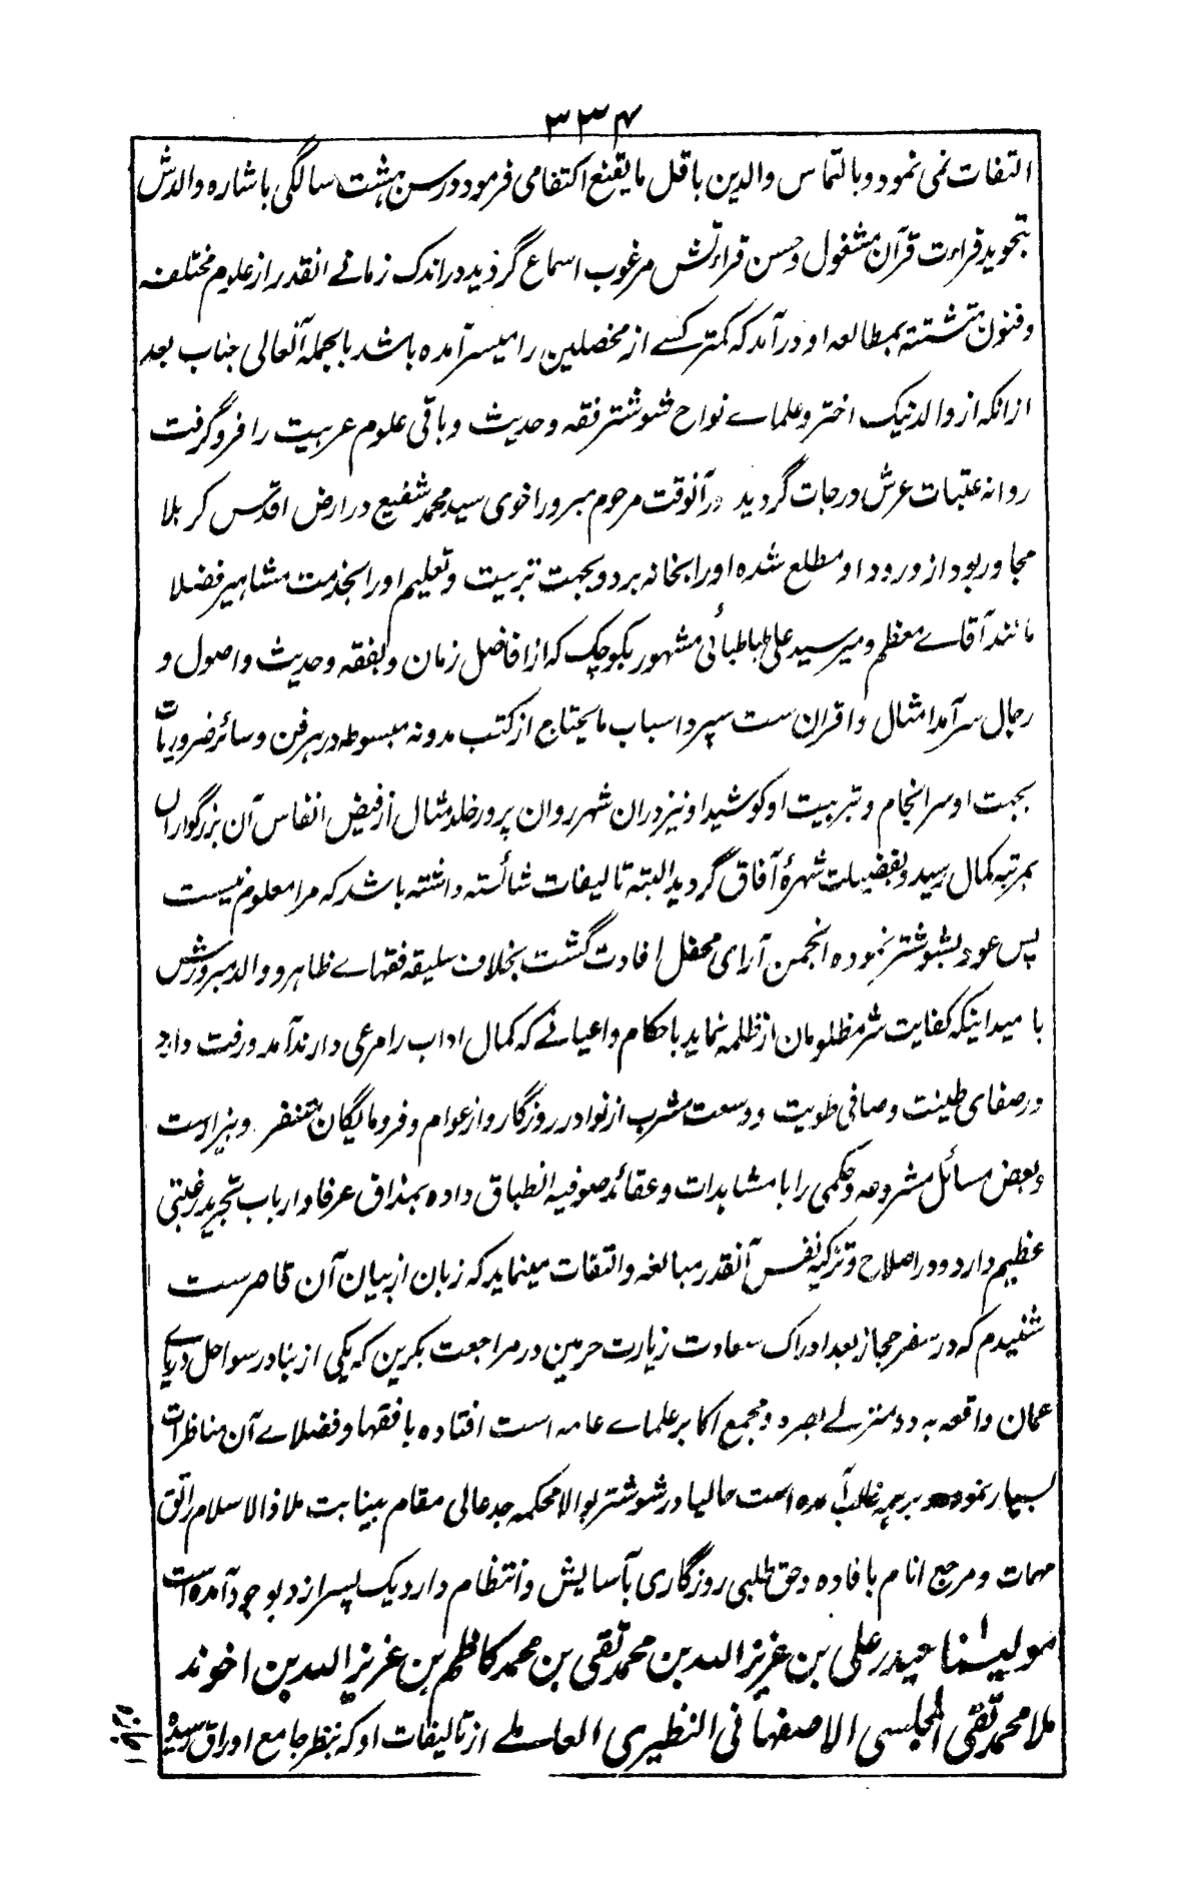 ۳۳۴
التفات نمی نمود و بالتماس والدین باقل مایقنع اکتفا می فرمود در سن هشت سالگی باشاره والدش
بتجوید قراءت قرآن مشغول و حسن قراءتش مرغوب اسماع گردید در اندک زمانے انقدر از علوم مختلفه
و فنون متشتته بمطالعه او در آمد که کمتر کسے از محصلین را میسر آمده باشد بالجمله آنعالی جناب بعد
ازانکه از والد نیک اختر و علماے نواح شوشتر فقه و حدیث و باقی علوم عربیت را فرو گرفت
روانه عتبات عرش درجات گردید درآنوقت مرحوم مبرور اخوی سید محمد شفیع در ارض اقدس کربلا
مجاور بود از ورود او مطلع شده او را بخانه برد و بجهت تربیت و تعلیم او را بخدمت مشاهیر فضلا
مانند آقاے معظم و میر سید علی طباطبائی مشهور بکوچک که از افاضل زمان و بفقه و حدیث و اصول و
رجال سرآمد امثال و اقران ست سپرد و اسباب مایحتاج از کتب مدونه مبسوطه در هر فن و سائر ضروریات
بجهت او سرانجام و تربیت او کوشید او نیز دران شهر روان پرور خلد مثال از فیض انفاس آن بزرگواران
بمرتبه کمال رسید و بفضیلت شهرهٔ آفاق گردید البته تالیفات شائسته داشته باشد که مرا معلوم نیست
پس عود بشوشتر نموده انجمن آرای محفل افادت گشت بخلاف سلیقه فقهاے ظاهر و والد مبرورش
با مید اینکه کفایت شر مظلومان از ظلمه نماید باحکام و اعیانے که کمال اداب را مرعی دارند آمد و رفت دارد
و رصفای طینت و صافی طویت و وسعت مشرب از نوادر روزگار و از عوام و فرومایگان متنفر و بیزارست
و بعض مسائل مشروعه و حکمی را با مشاهدات و عقائد صوفیه انطباق داده بمذاق عرفا و ارباب تجرید رغبتی
عظیم دارد و در اصلاح و تزکیه نفس آنقدر مبالغه و التفات مینماید که زبان از بیان آن قاصرست
شنیدم که در سفر حجاز بعد ادراک سعادت زیارت حرمین در مراجعت بکرین که یکی از بنادر سواحل دریاے
عمان واقعه به دو منزلے بصره و مجمع اکابر علماے عامه است افتاده با فقها و فضلاے آن مناظرات
بسیار نموده بر همه غالب آمده است حالیا در شوشتر بوالا محکمه جد عالی مقام بنیابت ملاذ الاسلام راتق
مهمات و مرجع انام بافاده و حق طلبی روزگاری بآسایش و انتظام دارد یک پسر ازو بوجود آمده است
مولینا حیدر علی بن عزیز الله بن محمد تقی بن محمد کاظم بن عزیز الله بن اخوند
ملا محمد تقی المجلسی الاصفهانی النظیری العاملے از تالیفات او که بنظر جامع اوراق رسیده